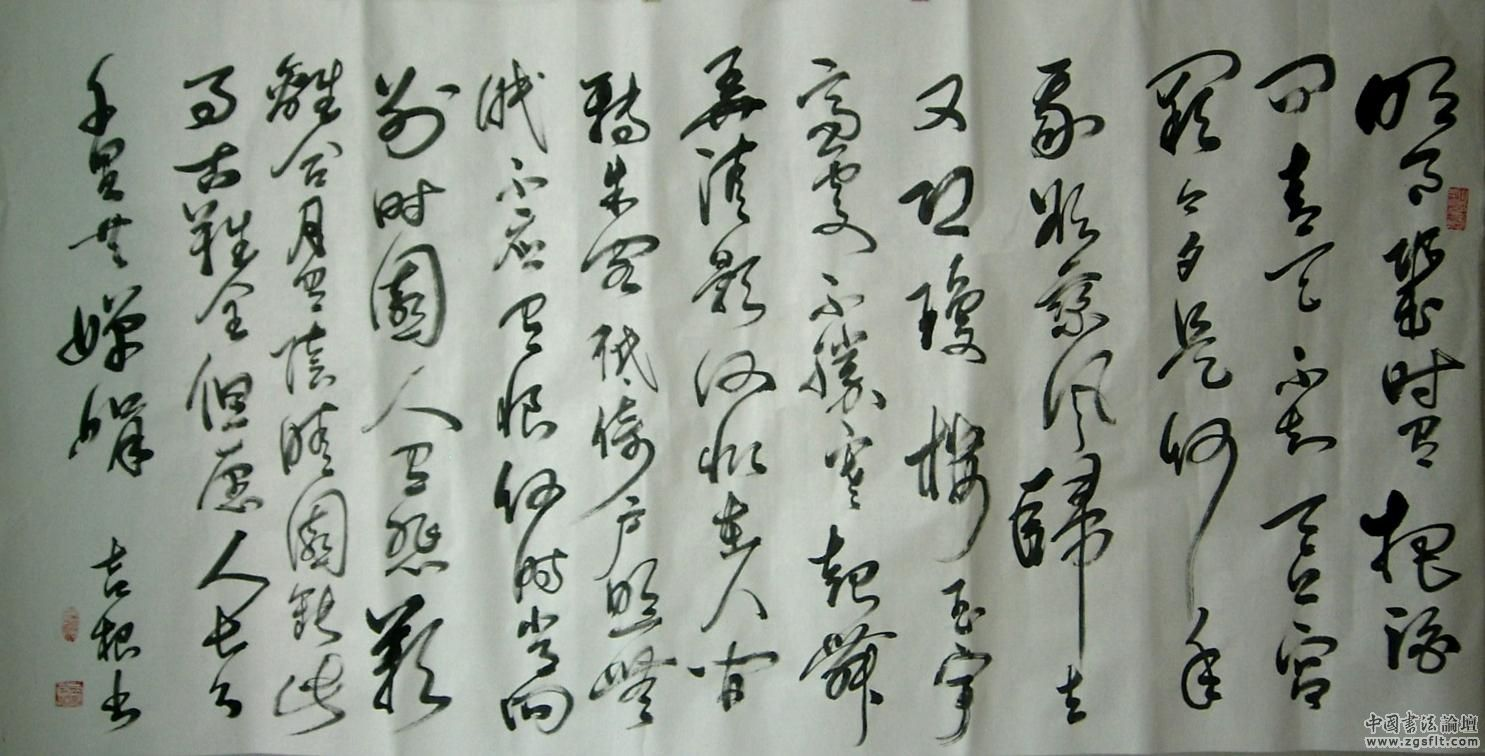 明月幾时有把酒
问青天不知天上宫
阙今夕是何年
我欲乘风歸去
又恐瓊楼玉宇
高處不勝寒起舞
弄清影何似在人间
轉朱阁低绮户照無
眠不应有恨何时常向
别时圆人有悲歡
離合月有陰晴圆缺此
事古難全但愿人长久
千里共嬋娟 吉根书
中国书法論壇
www.zgsflt.com